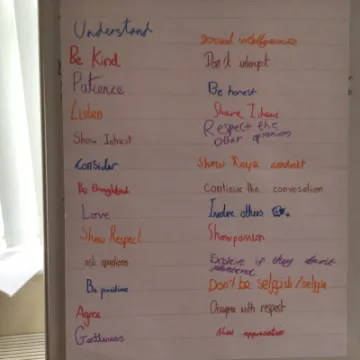 Understand
Be Kind
Patience
Listen
Show Intrest
Consider
Be thoughtful
Love
Show Respect
ask questions
Be positive
Agree
Gentleness
Don't interupt
Be honest
Share I
Respect the
other opinions
Show
Continue the convosation
Involve others
Show passion
Explain if they don't
Don't be selfish/
Disagree with respect
Show appreciation